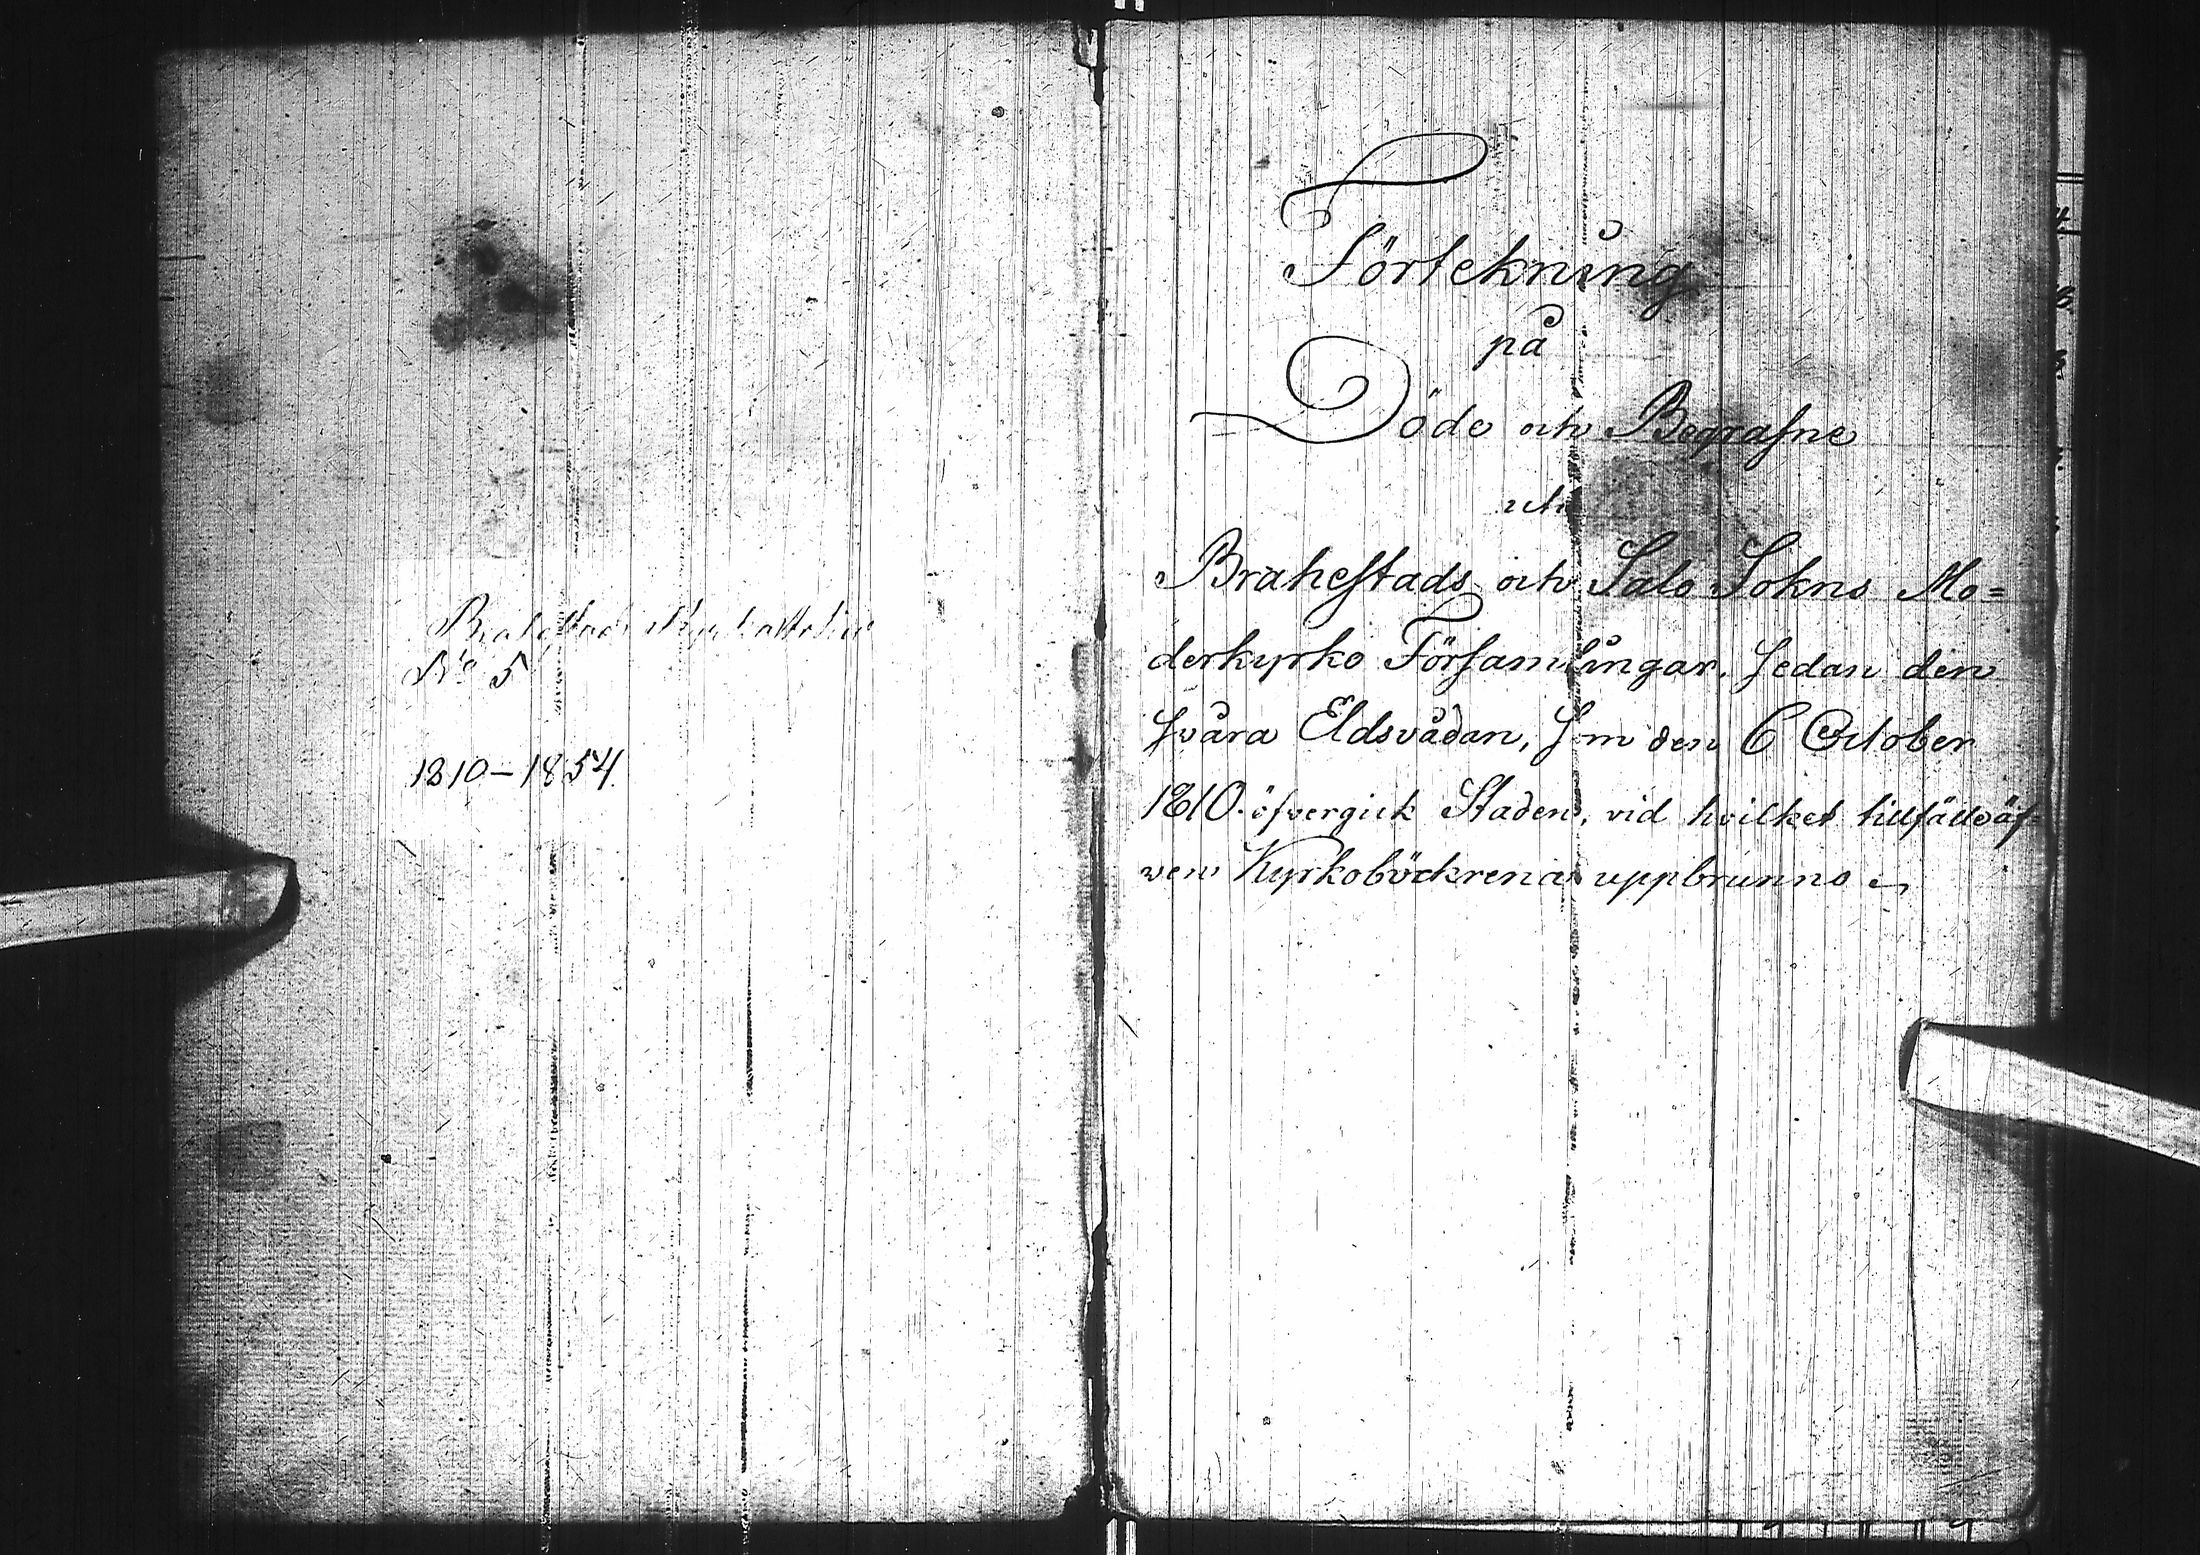 Brahestads
No 5
1810–1854.
Förtekning
på
Döde och Begrafne
uti
Brahestads och Salo Sokns Mo=
derkyrko Församlingar, sedan den
svåra Eldsvådan, som den 6 October
1810. öfvergick Staden, vid hvilket tillfälle äf=
ven Kyrkoböckrena uppbrunno